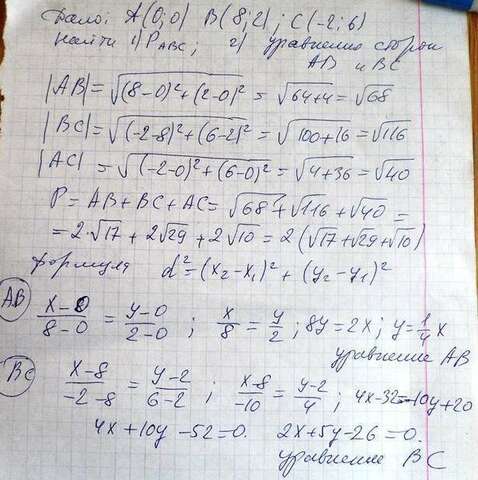 Дано: A(0;0) B(8;2); C(-2;6)
Найти 1) P ABC; 2) уравнение сторон
AB и BC
|AB|=√((8-0)²+(2-0)²) = √(64+4) = √68
|BC|=√((-2-8)²+(6-2)²) = √(100+16) = √116
|AC|=√((-2-0)²+(6-0)²) = √(4+36) = √40
P = AB+BC+AC = √68+√116+√40 =
= 2·√17 + 2√29 + 2√10 = 2(√17+√29+√10)
формула d²=(x₂-x₁)²+(y₂-y₁)²
AB (x-0)/(8-0) = (y-0)/(2-0); x/8 = y/2; 8y=2x; y=1/4 x
уравнение AB
BC (x-8)/(-2-8) = (y-2)/(6-2); (x-8)/-10 = (y-2)/4; 4x-32=-10y+20
4x+10y-52=0. 2x+5y-26=0.
уравнение BC